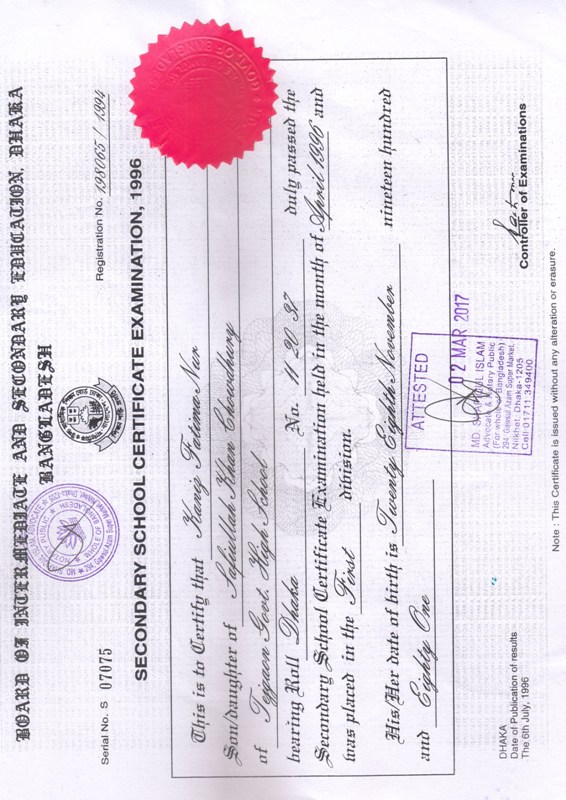 BOARD OF INTERMEDIATE AND SECONDARY EDUCATION, DHAKA
BANGLADESH
Serial No. S 07075
Registration No. 198065 / 1994
SECONDARY SCHOOL CERTIFICATE EXAMINATION, 1996
This is to Certify that Kaniz Fatima Nur
Son/daughter of Safiullah Khan Chowdhury
of Tejgaon Govt. High School
bearing Roll Dhaka No. 11 20 37 duly passed the
Secondary School Certificate Examination held in the month of April 1996 and
was placed in the First division.
His/Her date of birth is Twenty Eighth November nineteen hundred
and Eighty One
ATTESTED
02 MAR 2017
MD. ISLAM
Advocate & Notary Public
(For whole Bangladesh)
294, Gawsul Azam Super Market,
Nilkhet, Dhaka-1205
Cell: 01711 349400
DHAKA
Date of Publication of results
The 6th July, 1996
Controller of Examinations
Note : This Certificate is issued without any alteration or erasure.
GOVT. OF BANGLADESH
NOTARY PUBLIC
WHOLE OF BANGLADESH